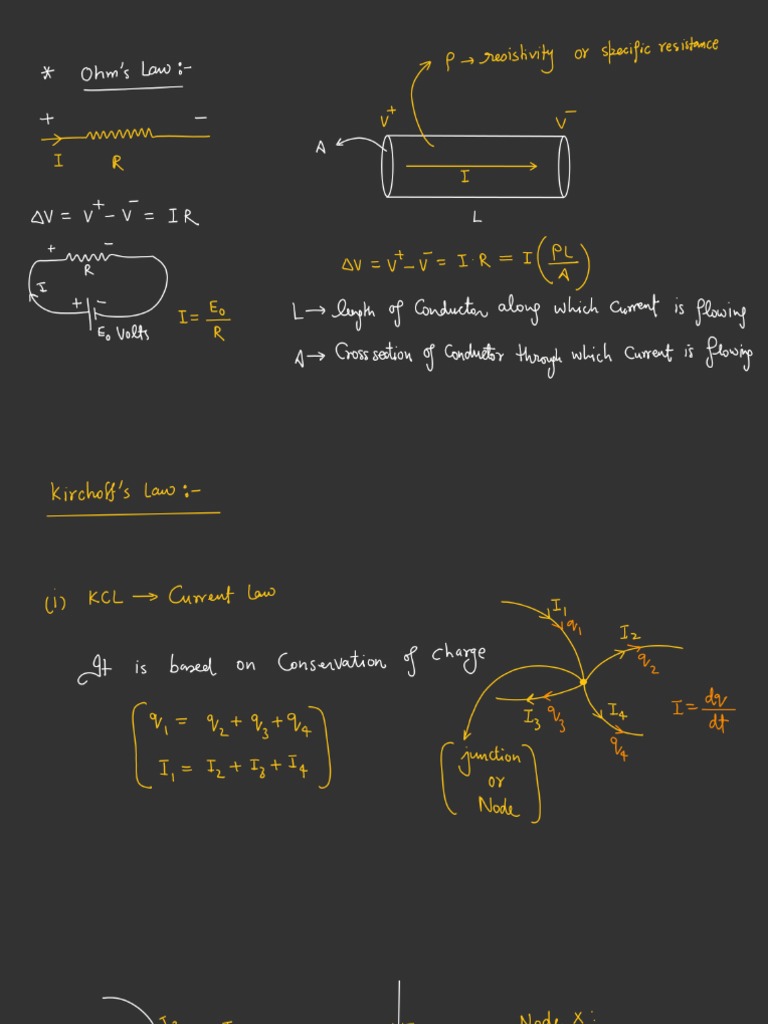 * Ohm's Law :-
+ −
I R
ΔV = V⁺ − V⁻ = I R
+ −
R
I
+ −
E₀ Volts
I = E₀/R
ρ → resistivity or specific resistance
V⁺ V⁻
A
I
L
ΔV = V⁺ − V⁻ = I · R = I (ρL/A)
L → length of Conductor along which Current is flowing
A → Cross section of Conductor through which Current is flowing
Kirchoff's Law :-
(i) KCL → Current Law
It is based on Conservation of charge
q₁ = q₂ + q₃ + q₄
I₁ = I₂ + I₃ + I₄
I₁
q₁
I₂
q₂
I₃ q₃
I₄
q₄
I = dq/dt
junction
or
Node
Node X :